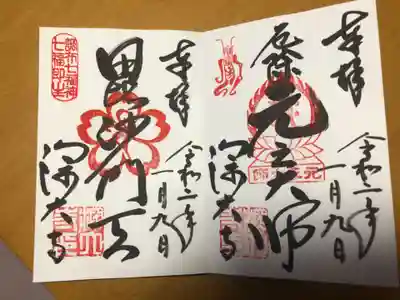 奉拝
令和二年
一月九日
厄除元三大師
深大寺
奉拝
令和二年
一月九日
毘沙門天
深大寺